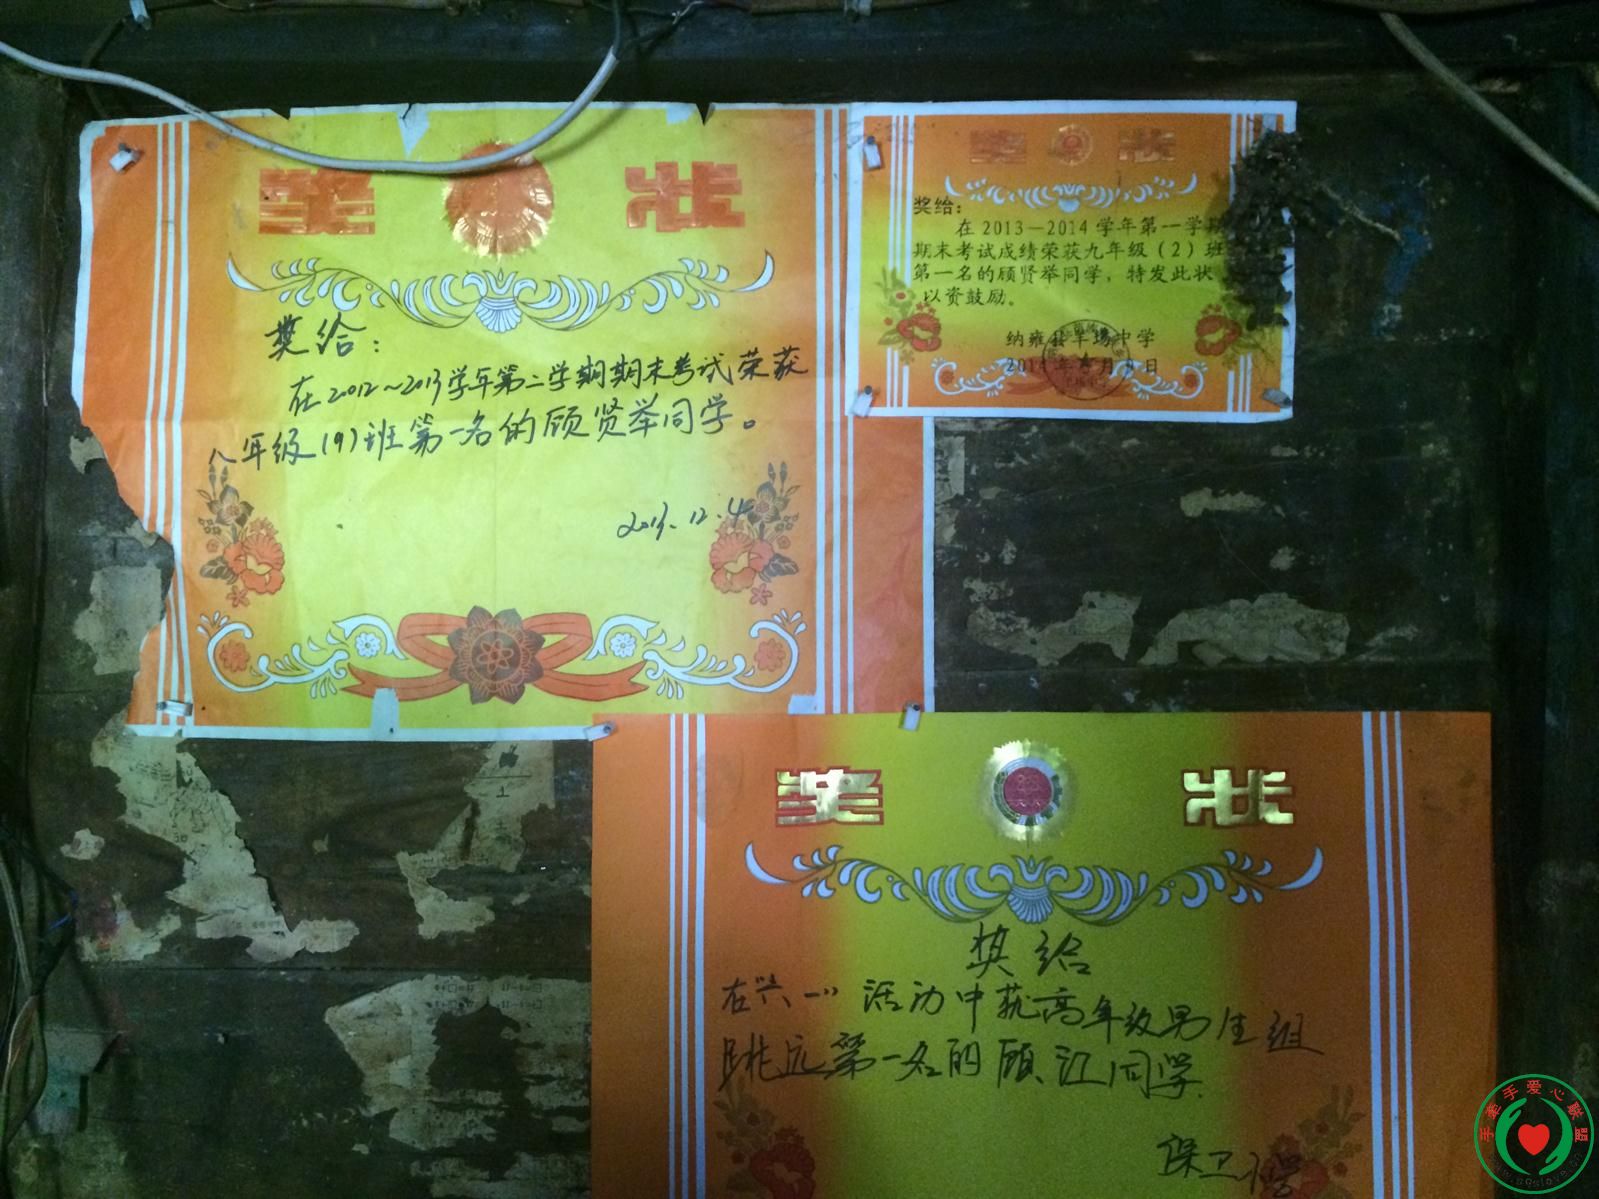 奖 状
奖给：
在2012~2013学年第二学期期末考试荣获
八年级(9)班第一名的顾贤举同学。
2013.12.4
奖 状
奖给：
在2013—2014学年第一学期
期末考试成绩荣获九年级（2）班
第一名的顾贤举同学，特发此状
以资鼓励。
纳雍县羊场中学
2014年 月9日
奖 状
奖给
在"六一"活动中获高年级男生组
跳远第一名的顾江同学
保卫小学
手牵手爱心联盟